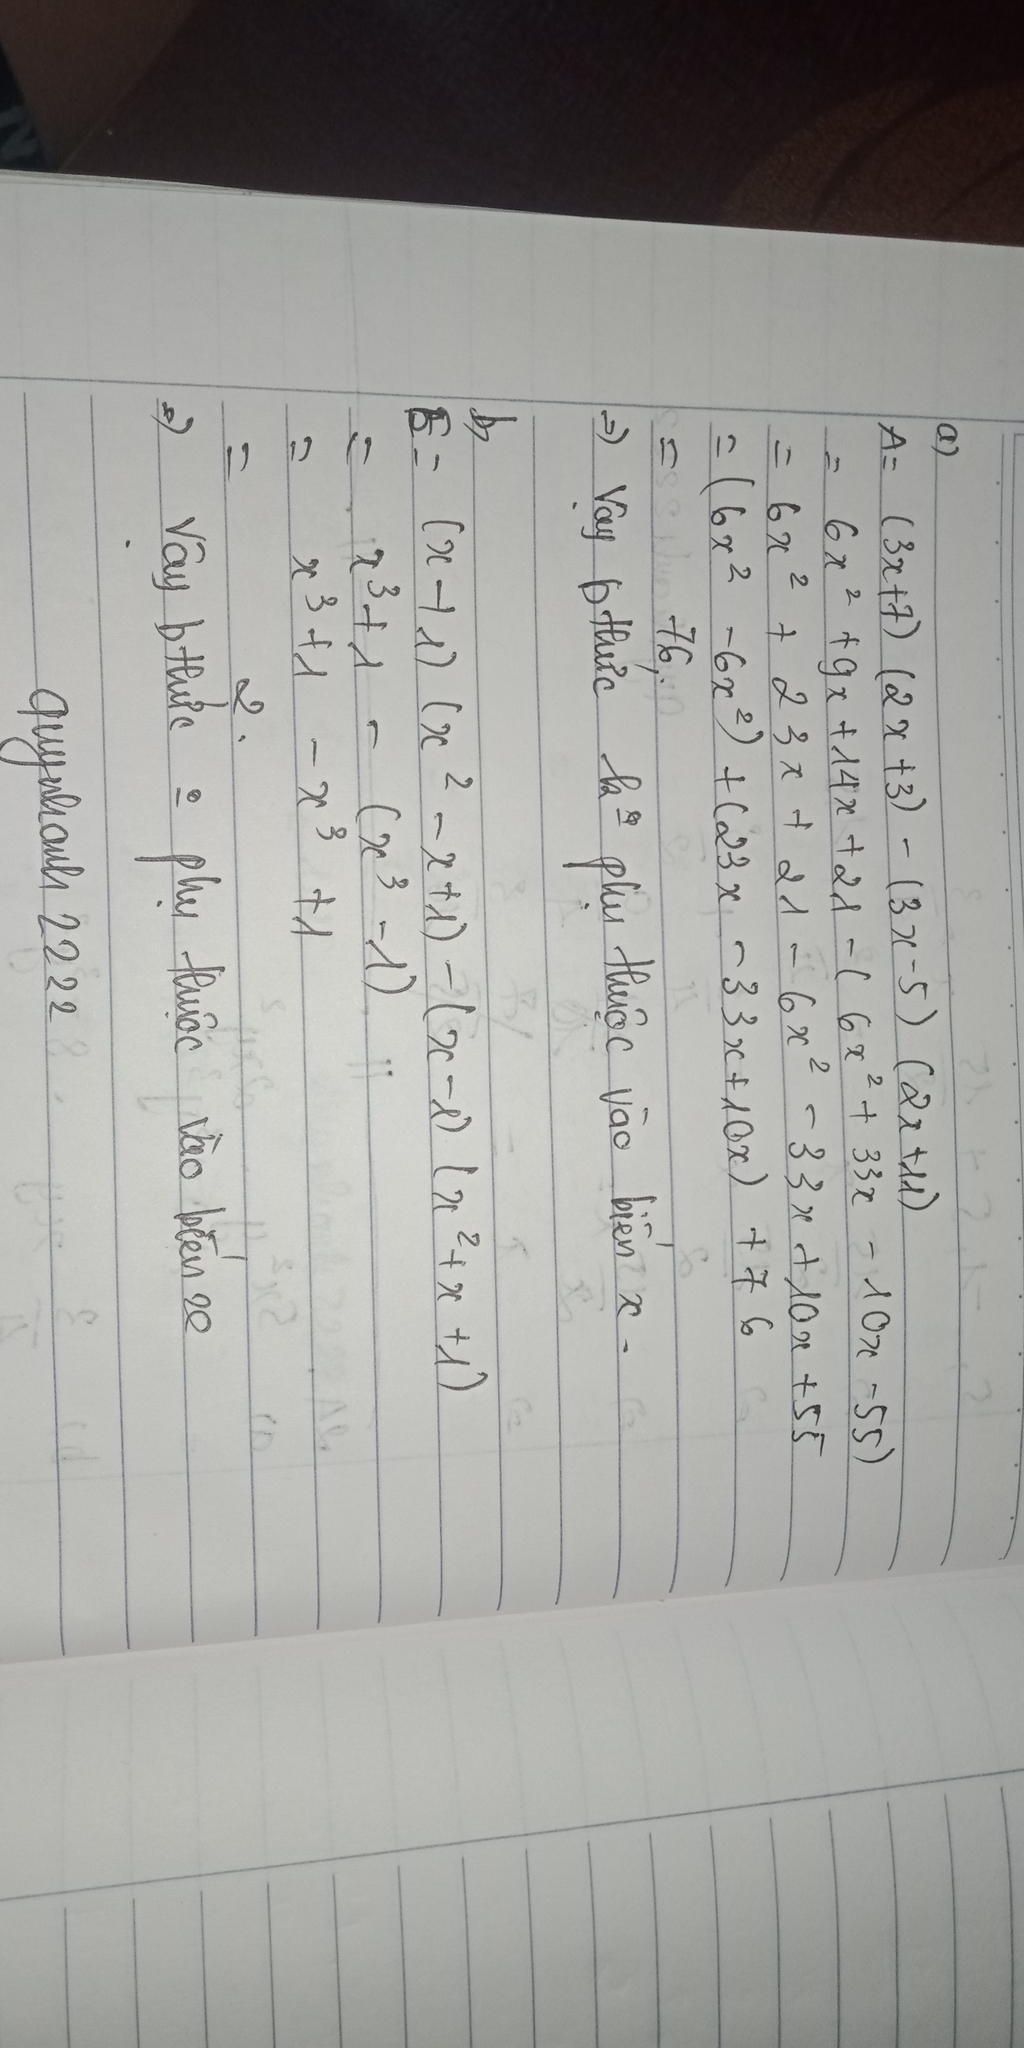 a)
A = (3x+7) (2x+3) - (3x-5) (2x+11)
= 6x² + 9x + 14x + 21 - ( 6x² + 33x - 10x - 55)
= 6x² + 23x + 21 - 6x² - 33x + 10x + 55
= (6x² - 6x²) + (23x - 33x + 10x) + 76
= 76.
=) Vậy bthức ko phụ thuộc vào biến x.
b,
B = (x+1) (x² - x + 1) - (x - 1) (x² + x + 1)
= x³ + 1 - (x³ - 1)
= x³ + 1 - x³ + 1
= 2.
=) Vậy bthức phụ thuộc vào biến x
quynhanh2222